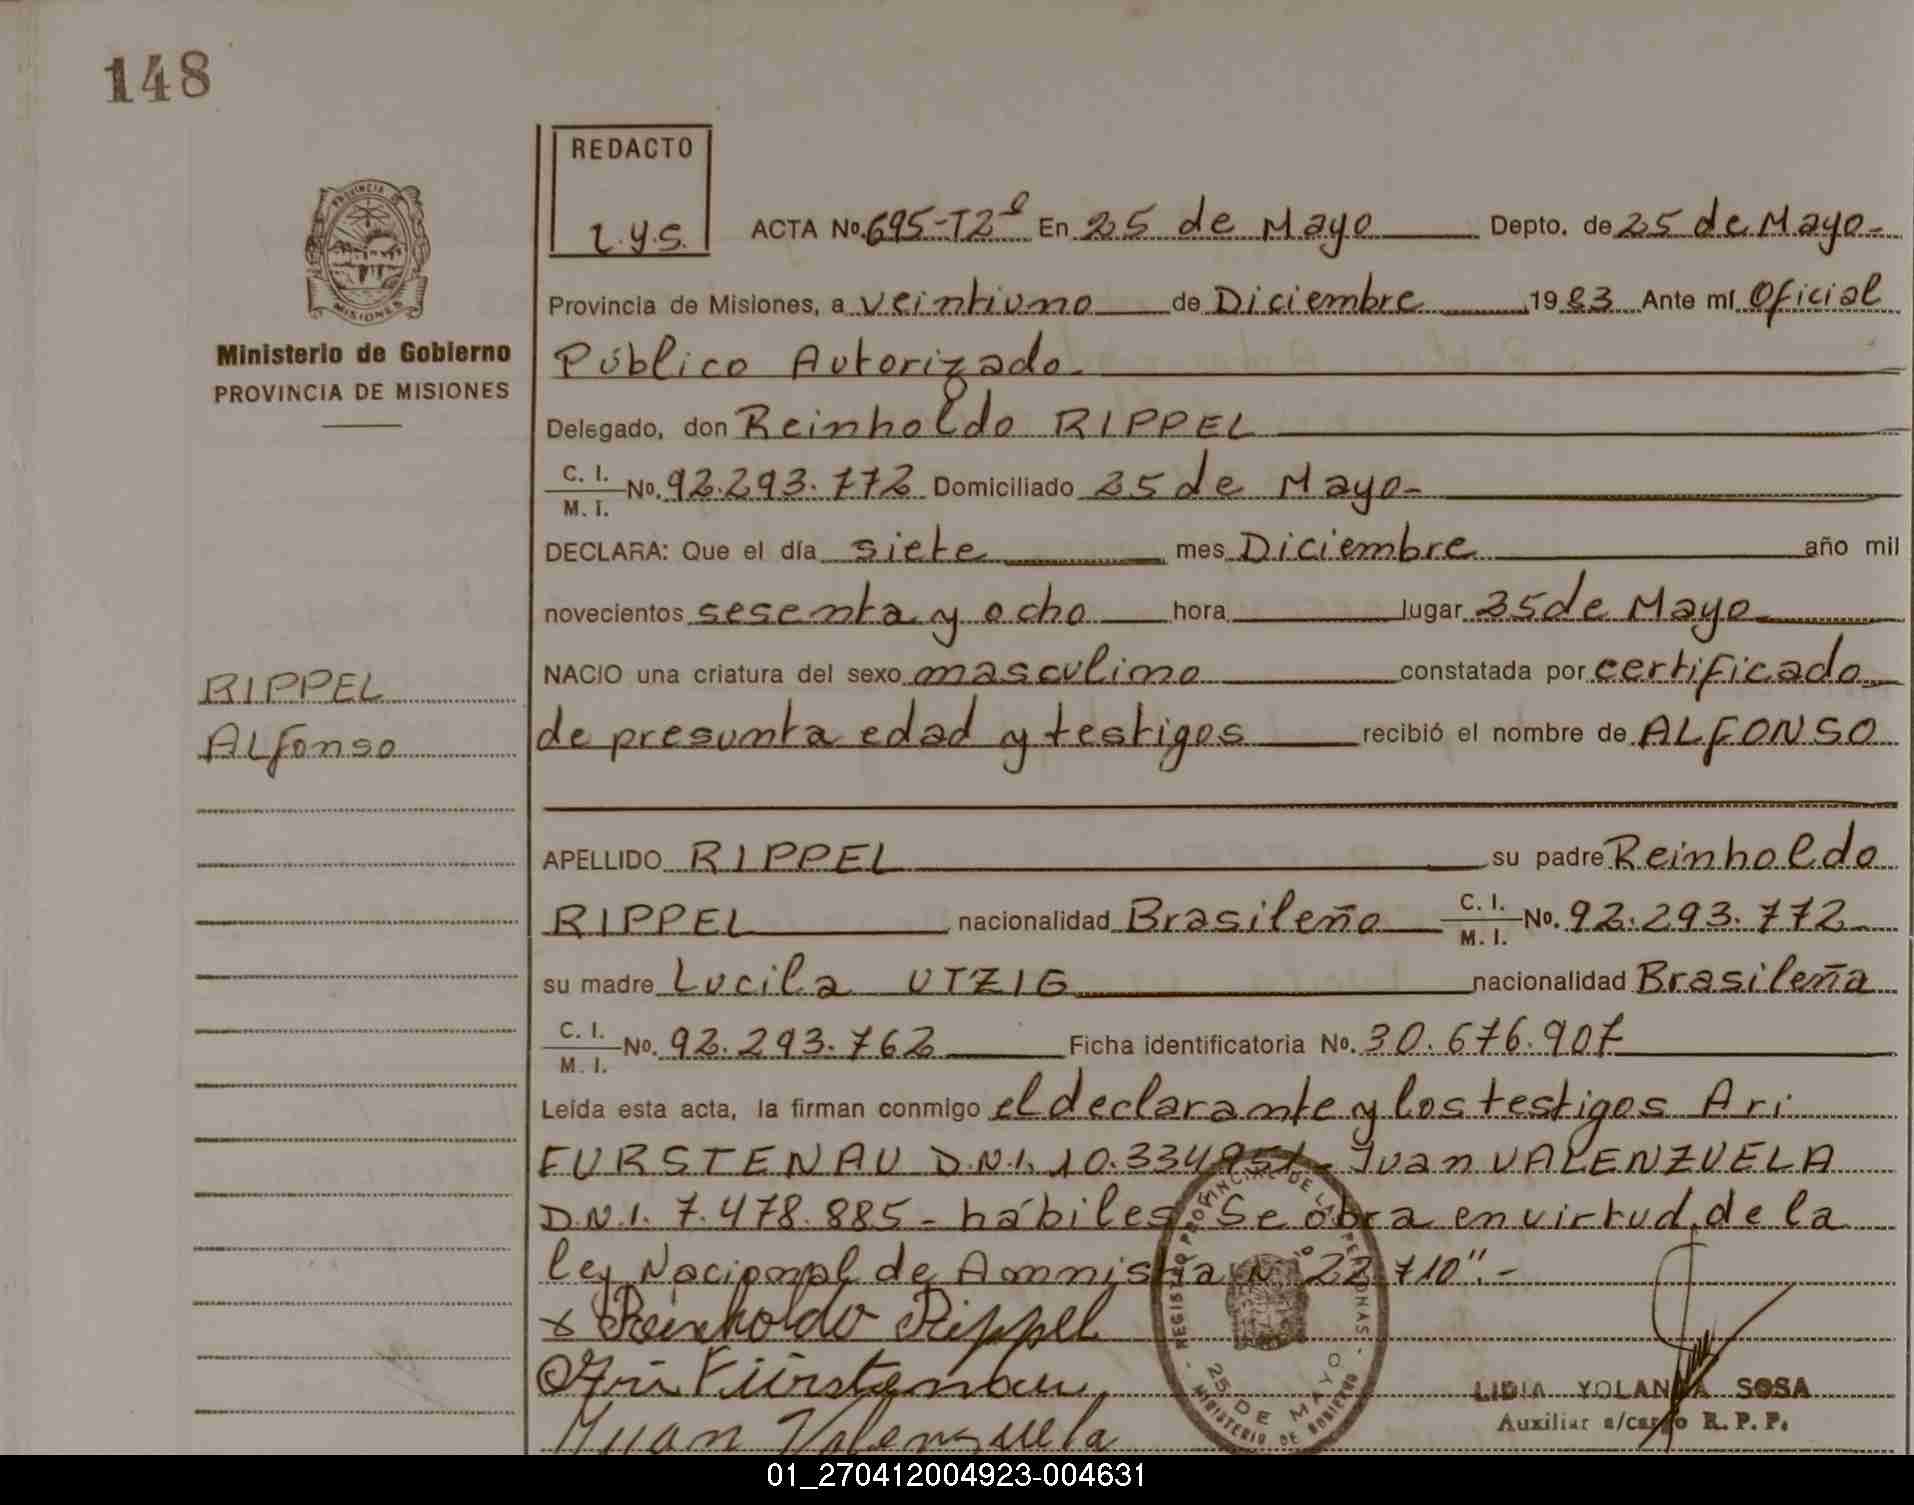 148
REDACTO
l.y.s.
PROVINCIA DE
MISIONES
ACTA No. 695-T2º En 25 de Mayo Depto. de 25 de Mayo-
Provincia de Misiones, a veintiuno de Diciembre 1983 Ante mí Oficial
Ministerio de Gobierno
PROVINCIA DE MISIONES
Público Autorizado.
Delegado, don Reinholdo RIPPEL
C. I. / M. I. No. 92.293.772 Domiciliado 25 de Mayo-
DECLARA: Que el día siete mes Diciembre año mil
novecientos sesenta y ocho hora lugar 25 de Mayo
NACIO una criatura del sexo masculino constatada por certificado
RIPPEL
Alfonso
de presunta edad y testigos recibió el nombre de ALFONSO
APELLIDO RIPPEL su padre Reinholdo
RIPPEL nacionalidad Brasileño C. I. / M. I. No. 92.293.772
su madre Lucila UTZIG nacionalidad Brasileña
C. I. / M. I. No. 92.293.762 Ficha identificatoria No. 30.676.907
Leída esta acta, la firman conmigo el declarante y los testigos Ari
FURSTENAU D.N.I. 10.334.951- Juan VALENZUELA
D.N.I. 7.478.885- hábiles. Se obra en virtud de la
ley Nacional de Amnistia Nº 22.710".-
x Reinholdo Rippel
Ari Fürstenau
Juan Valenzuela
REGISTRO PROVINCIAL DE LAS PERSONAS
25 DE MAYO
MINISTERIO DE GOBIERNO
LIDIA YOLANDA SOSA
Auxiliar a/cargo R. P. P.
01_270412004923-004631